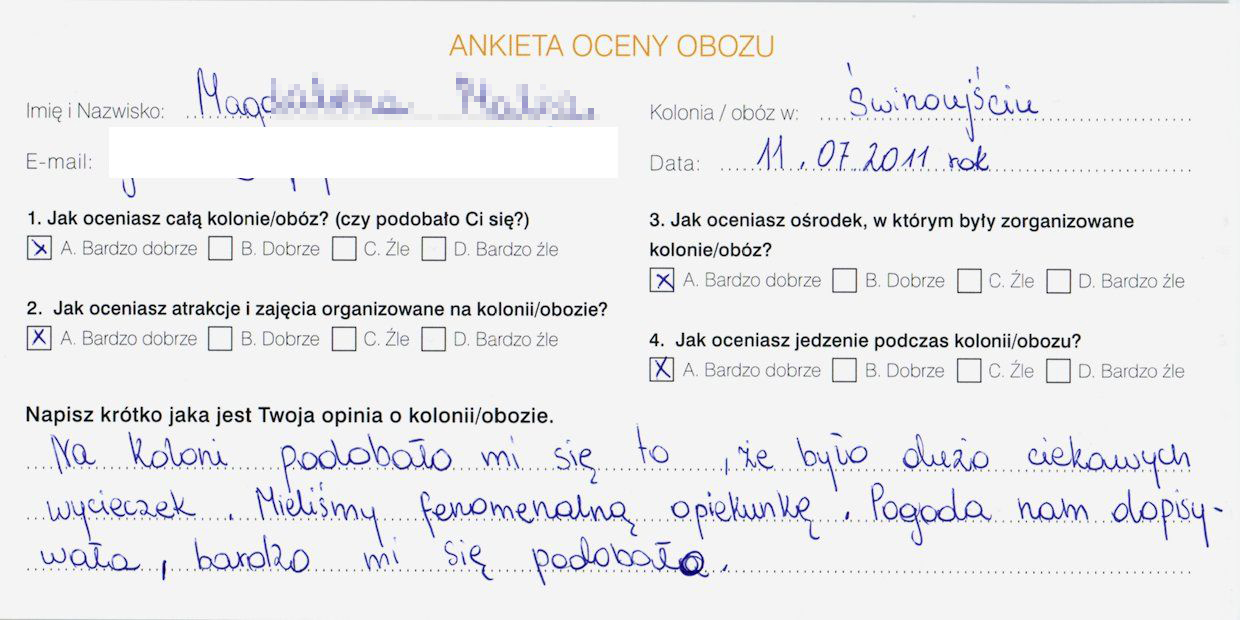 ANKIETA OCENY OBOZU
Imię i Nazwisko:
Kolonia / obóz w: Świnoujściu
E-mail:
Data: 11.07.2011 rok
1. Jak oceniasz całą kolonie/obóz? (czy podobało Ci się?)
A. Bardzo dobrze B. Dobrze C. Źle D. Bardzo źle
2. Jak oceniasz atrakcje i zajęcia organizowane na kolonii/obozie?
A. Bardzo dobrze B. Dobrze C. Źle D. Bardzo źle
3. Jak oceniasz ośrodek, w którym były zorganizowane
kolonie/obóz?
A. Bardzo dobrze B. Dobrze C. Źle D. Bardzo źle
4. Jak oceniasz jedzenie podczas kolonii/obozu?
A. Bardzo dobrze B. Dobrze C. Źle D. Bardzo źle
Napisz krótko jaka jest Twoja opinia o kolonii/obozie.
Na koloni podobało mi się to , że było dużo ciekawych
wycieczek . Mieliśmy fenomenalną opiekunkę . Pogoda nam dopisy-
wała , bardzo mi się podobało .